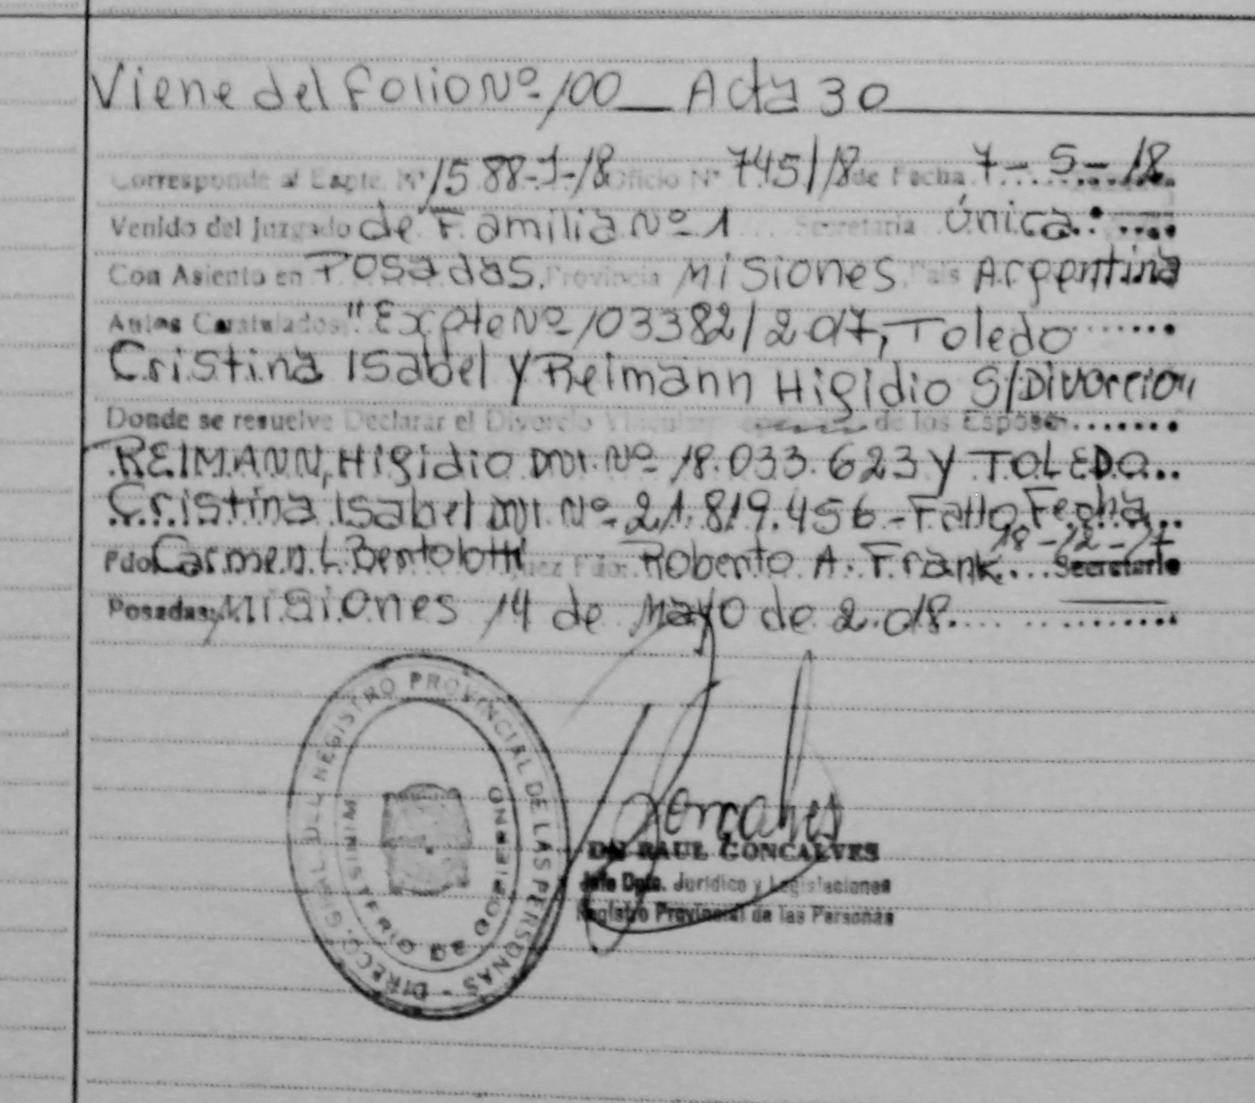 Viene del folio Nº 100 Acta 30
Corresponde al Expte. Nº 1588-J-18 Oficio Nº 745/18 de Fecha 7-5-18
Venido del Juzgado de Familia Nº 1 Secretaría Única
Con Asiento en Posadas, Provincia Misiones País Argentina
Autos Caratulados: "Expte Nº 103382/2017, Toledo
Cristina Isabel y Reimann Higidio S/Divorcio"
Donde se resuelve Declarar el Divorcio Vincular de los Esposos
REIMANN, Higidio DNI. Nº 18.033.623 y TOLEDO
Cristina Isabel DNI. Nº 21.819.456 - Fallo Fecha
18-12-17
Fdo: Carmen L. Bertolotti Juez Fdo: Roberto A. Frank Secretario
Posadas, Misiones 14 de Mayo de 2.018.
DIREC. GRAL. DEL REGISTRO PROVINCIAL DE LAS PERSONAS -
MINISTERIO DE GOBIERNO
Goncalves
RAUL GONCALVES
Jefe Dpto. Jurídico y Legislaciones
Registro Provincial de las Personas